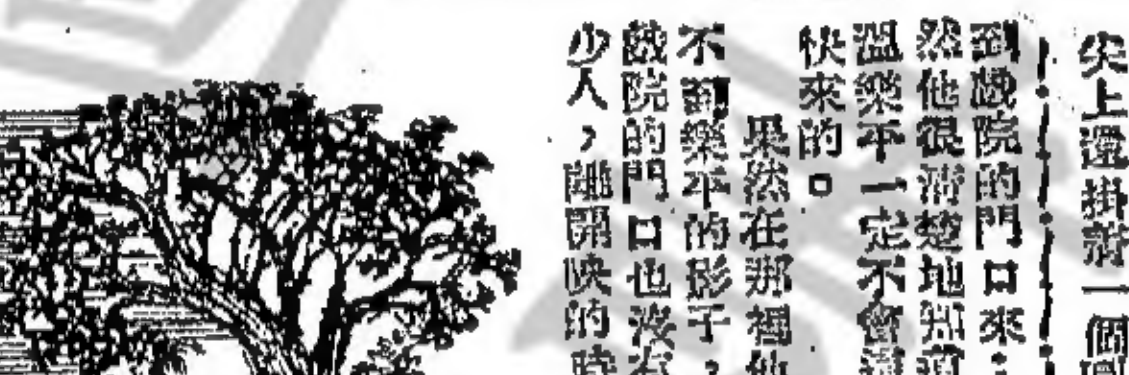 尖上還掛着一個
到戲院的門口來；
然他很清楚地知道
溫樂平一定不會
快來的。
果然在那裡他
不到樂平的影子，
戲院的門口也沒有
少人，離開映的時